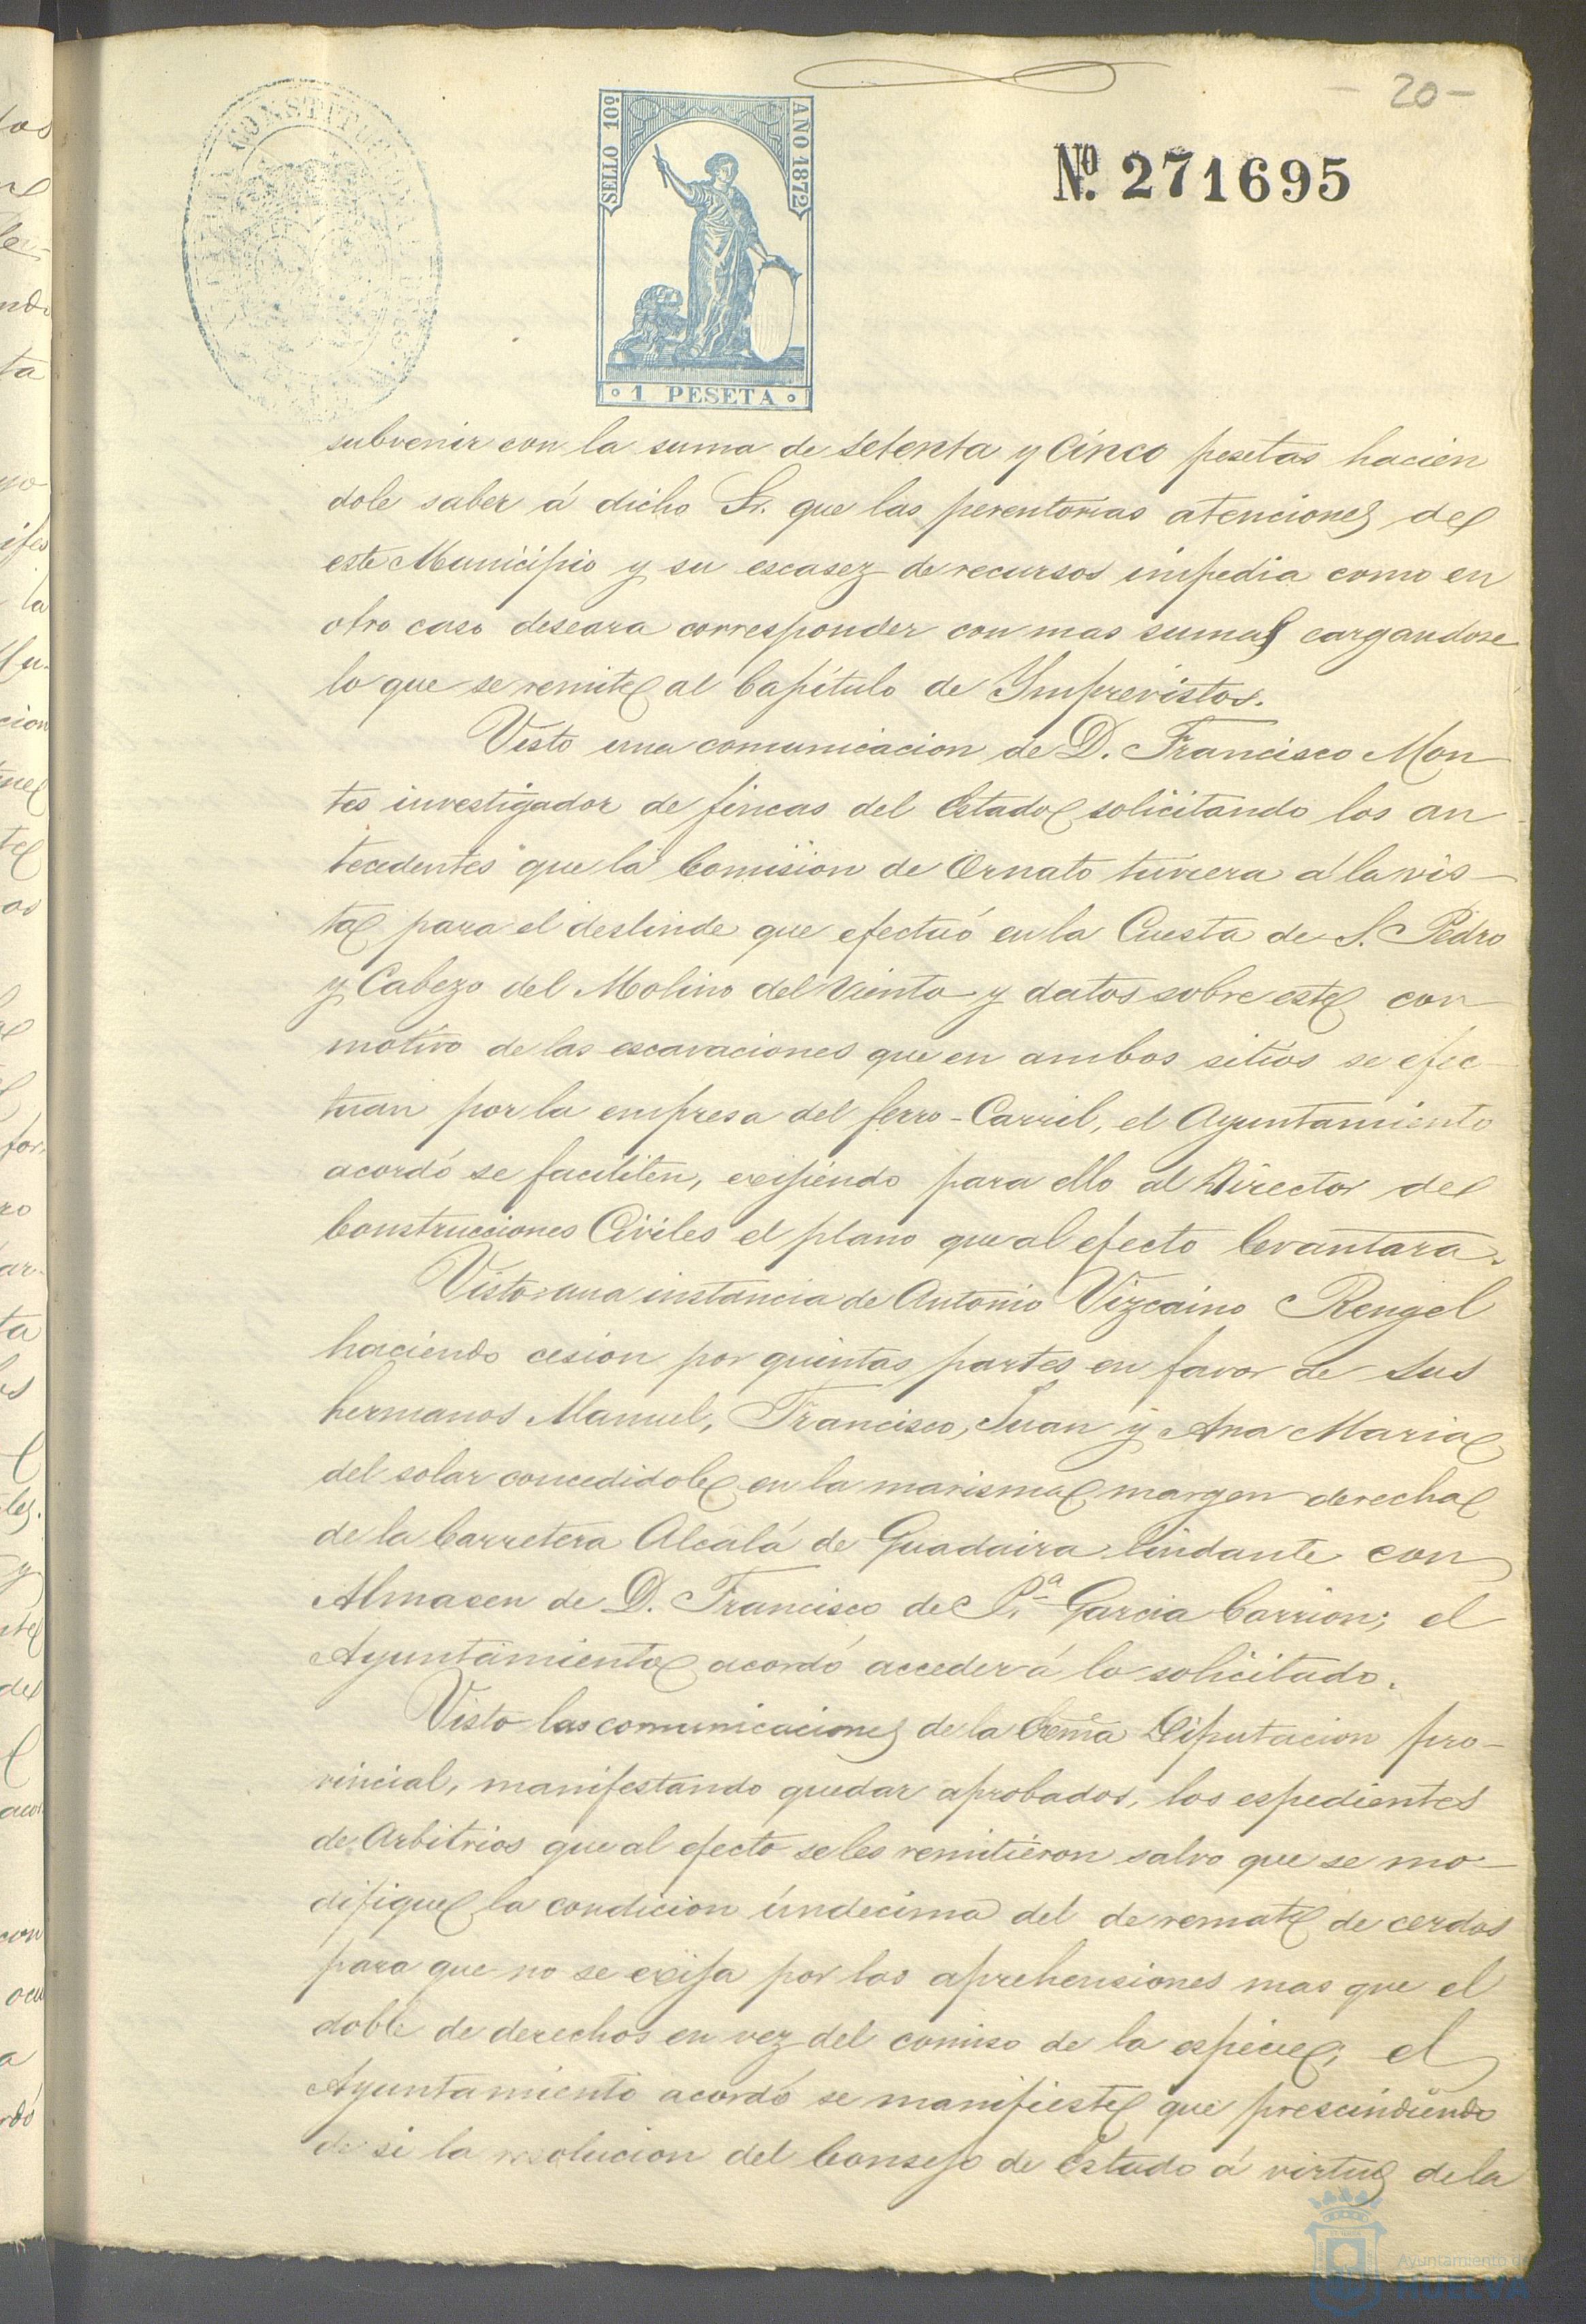 20-
CONSTITUCIONAL
SELLO 10º
AÑO 1872
Nº. 271695
1 PESETA
subvenir con la suma de setenta y Cinco pesetas hacien
dole saber á dicho Sr. que las perentorias atenciones de
este Municipio y su escasez de recursos impedia como en
otro caso deseara corresponder con mas sumas cargandose
lo que se remite al Capítulo de Imprevistos.
Visto una comunicacion de D. Francisco Mon
tes investigador de fincas del Estado solicitando los an
tecedentes que la Comision de Ornato tuviera á la vis-
ta para el deslinde que efectuó en la Cuesta de S. Pedro
y Cabezo del Molino del Viento y datos sobre este con
motivo de las escavaciones que en ambos sitios se efec-
tuan por la empresa del ferro-Carril, el Ayuntamiento
acordó se faciliten, exijiendo para ello al Director de
Construcciones Civiles el plano que al efecto levantara.
Visto una instancia de Antonio Vizcaino Rengel
haciendo cesion por quintas partes en favor de sus
hermanos Manuel, Francisco, Juan y Ana Maria
del solar concedidole en la marisma margen derecha
de la Carretera Alcalá de Guadaira lindante con
Almacen de D. Francisco de P.ª Garcia Carrion; el
Ayuntamiento acordó acceder á lo solicitado.
Visto las comunicaciones de la Exema Diputacion pro-
vincial, manifestando quedar aprobados, los espedientes
de Arbitrios que al efecto se les remitieron salvo que se mo-
difique la condicion úndecima del de remate de cerdos
para que no se exija por las aprehensiones mas que el
doble de derechos en vez del comiso de la especie; el
Ayuntamiento acordó se manifieste que prescindiendo
de si la resolucion del Consejo de Estado á virtud de la
Ayuntamiento de
HUELVA